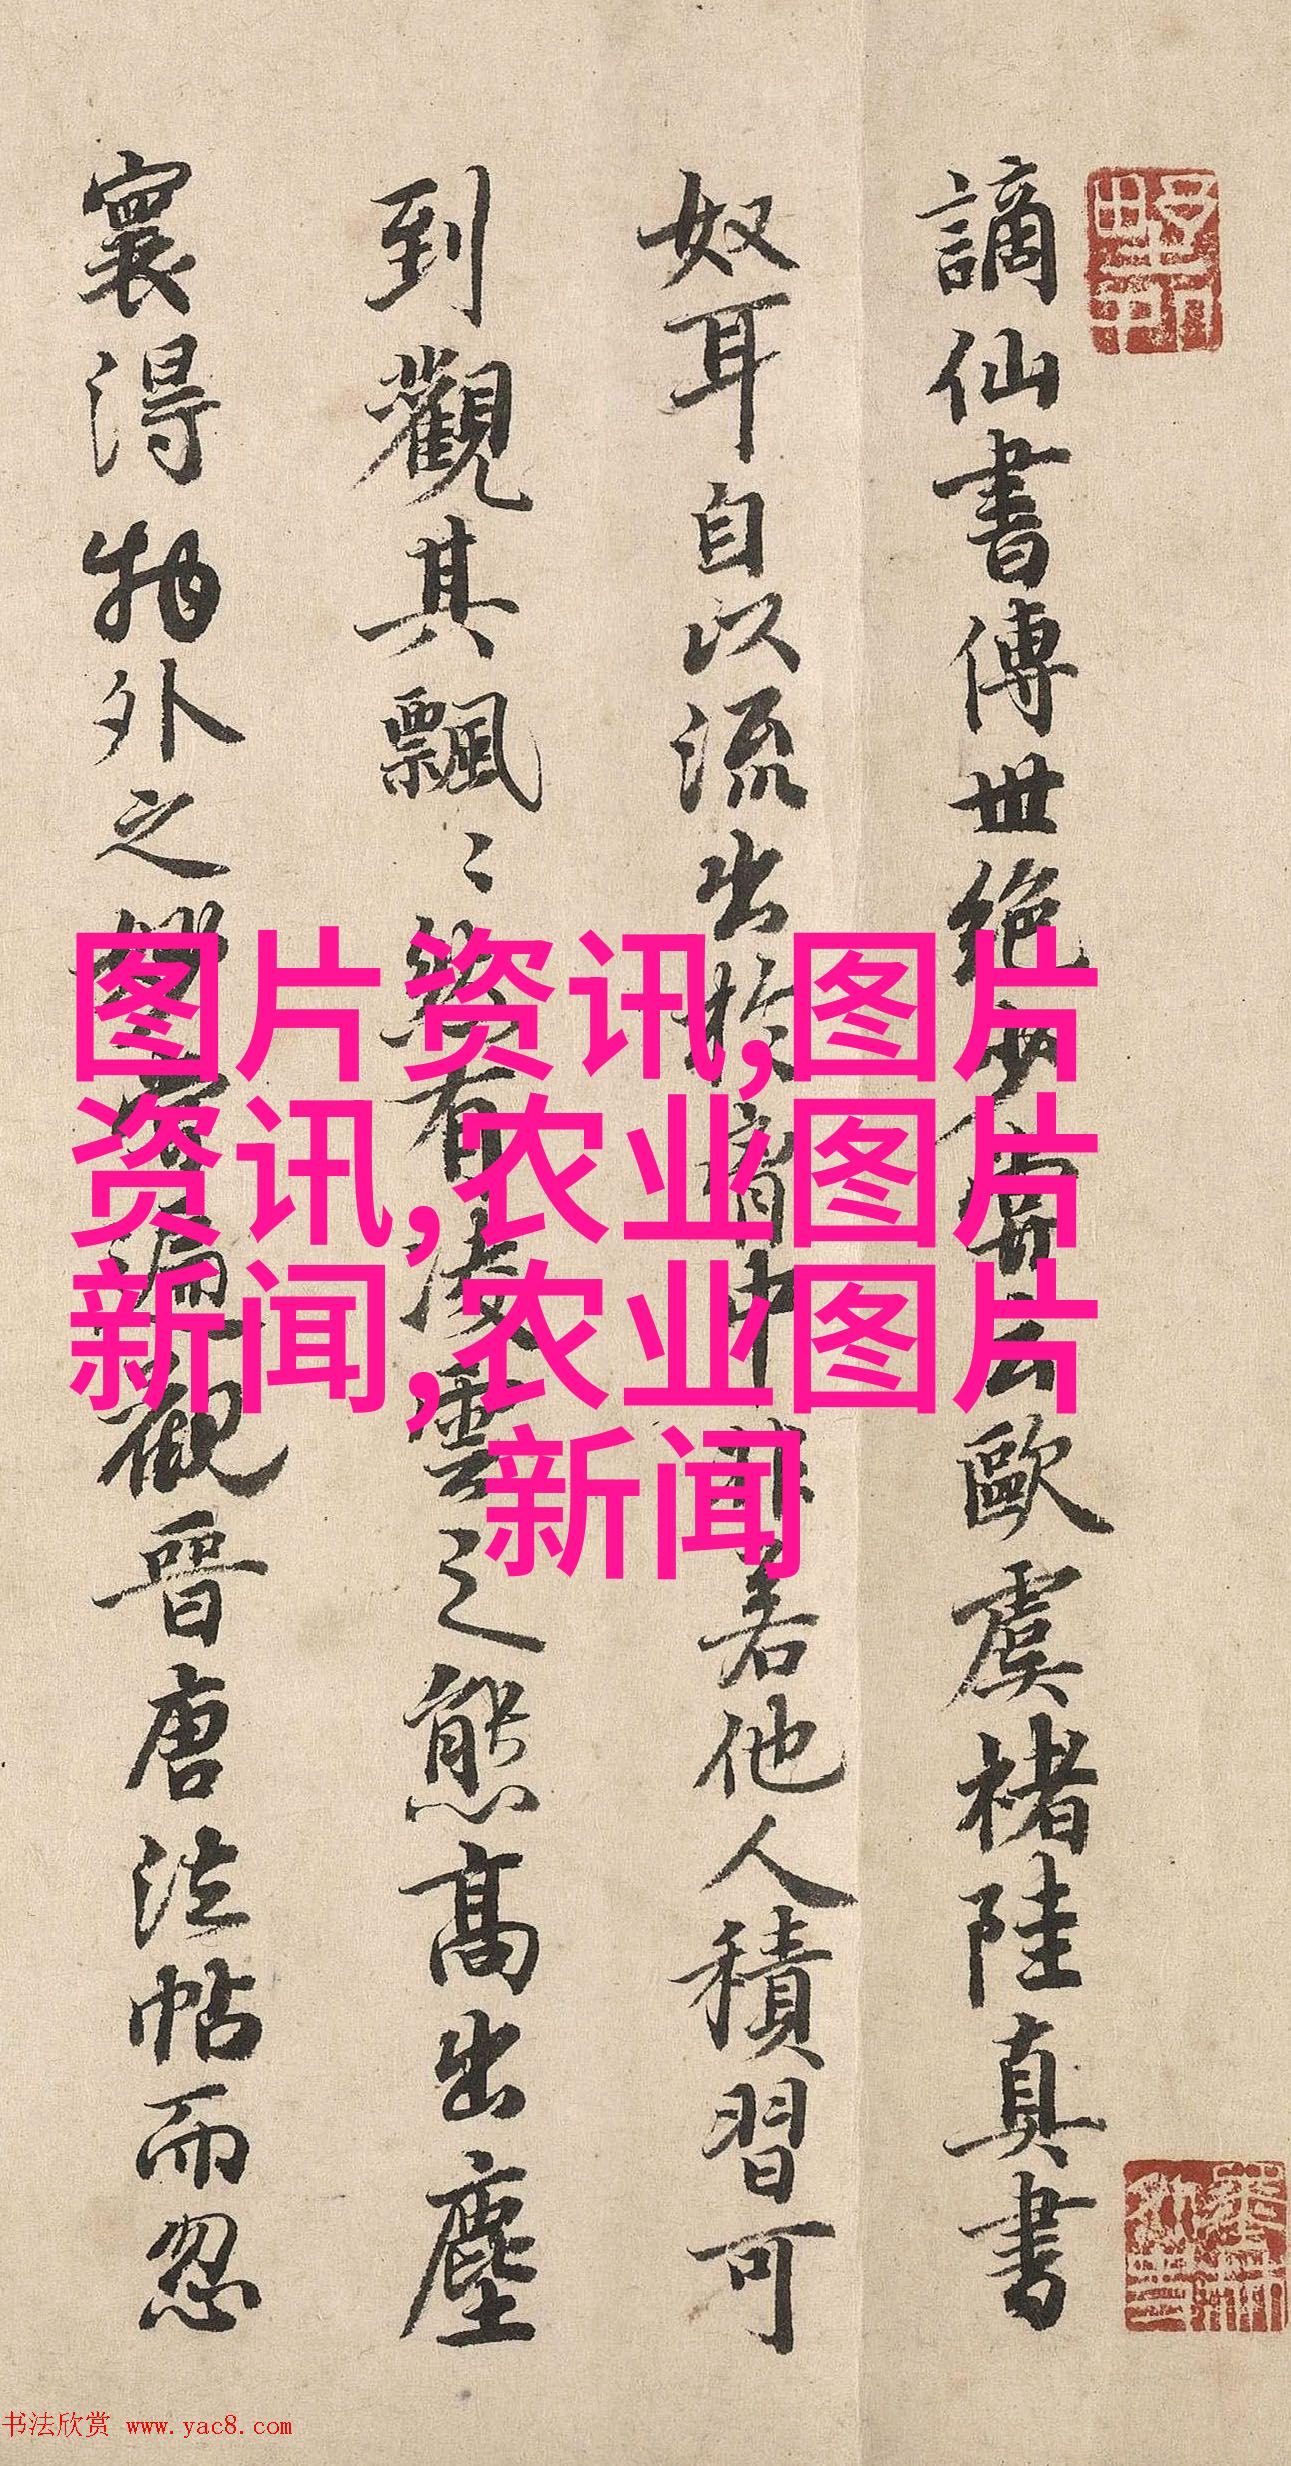 謫仙書傳世絕少嘗云歐虞褚陸真書
奴耳自以流出於胷中非若他人積習可
到觀其飄〻然有凌雲之態高出塵
寰得物外之妙嘗遍觀晉唐法帖而忽
图片资讯,图片
资讯,农业图片
新闻,农业图片
新闻
书法欣赏 www.yac8.com